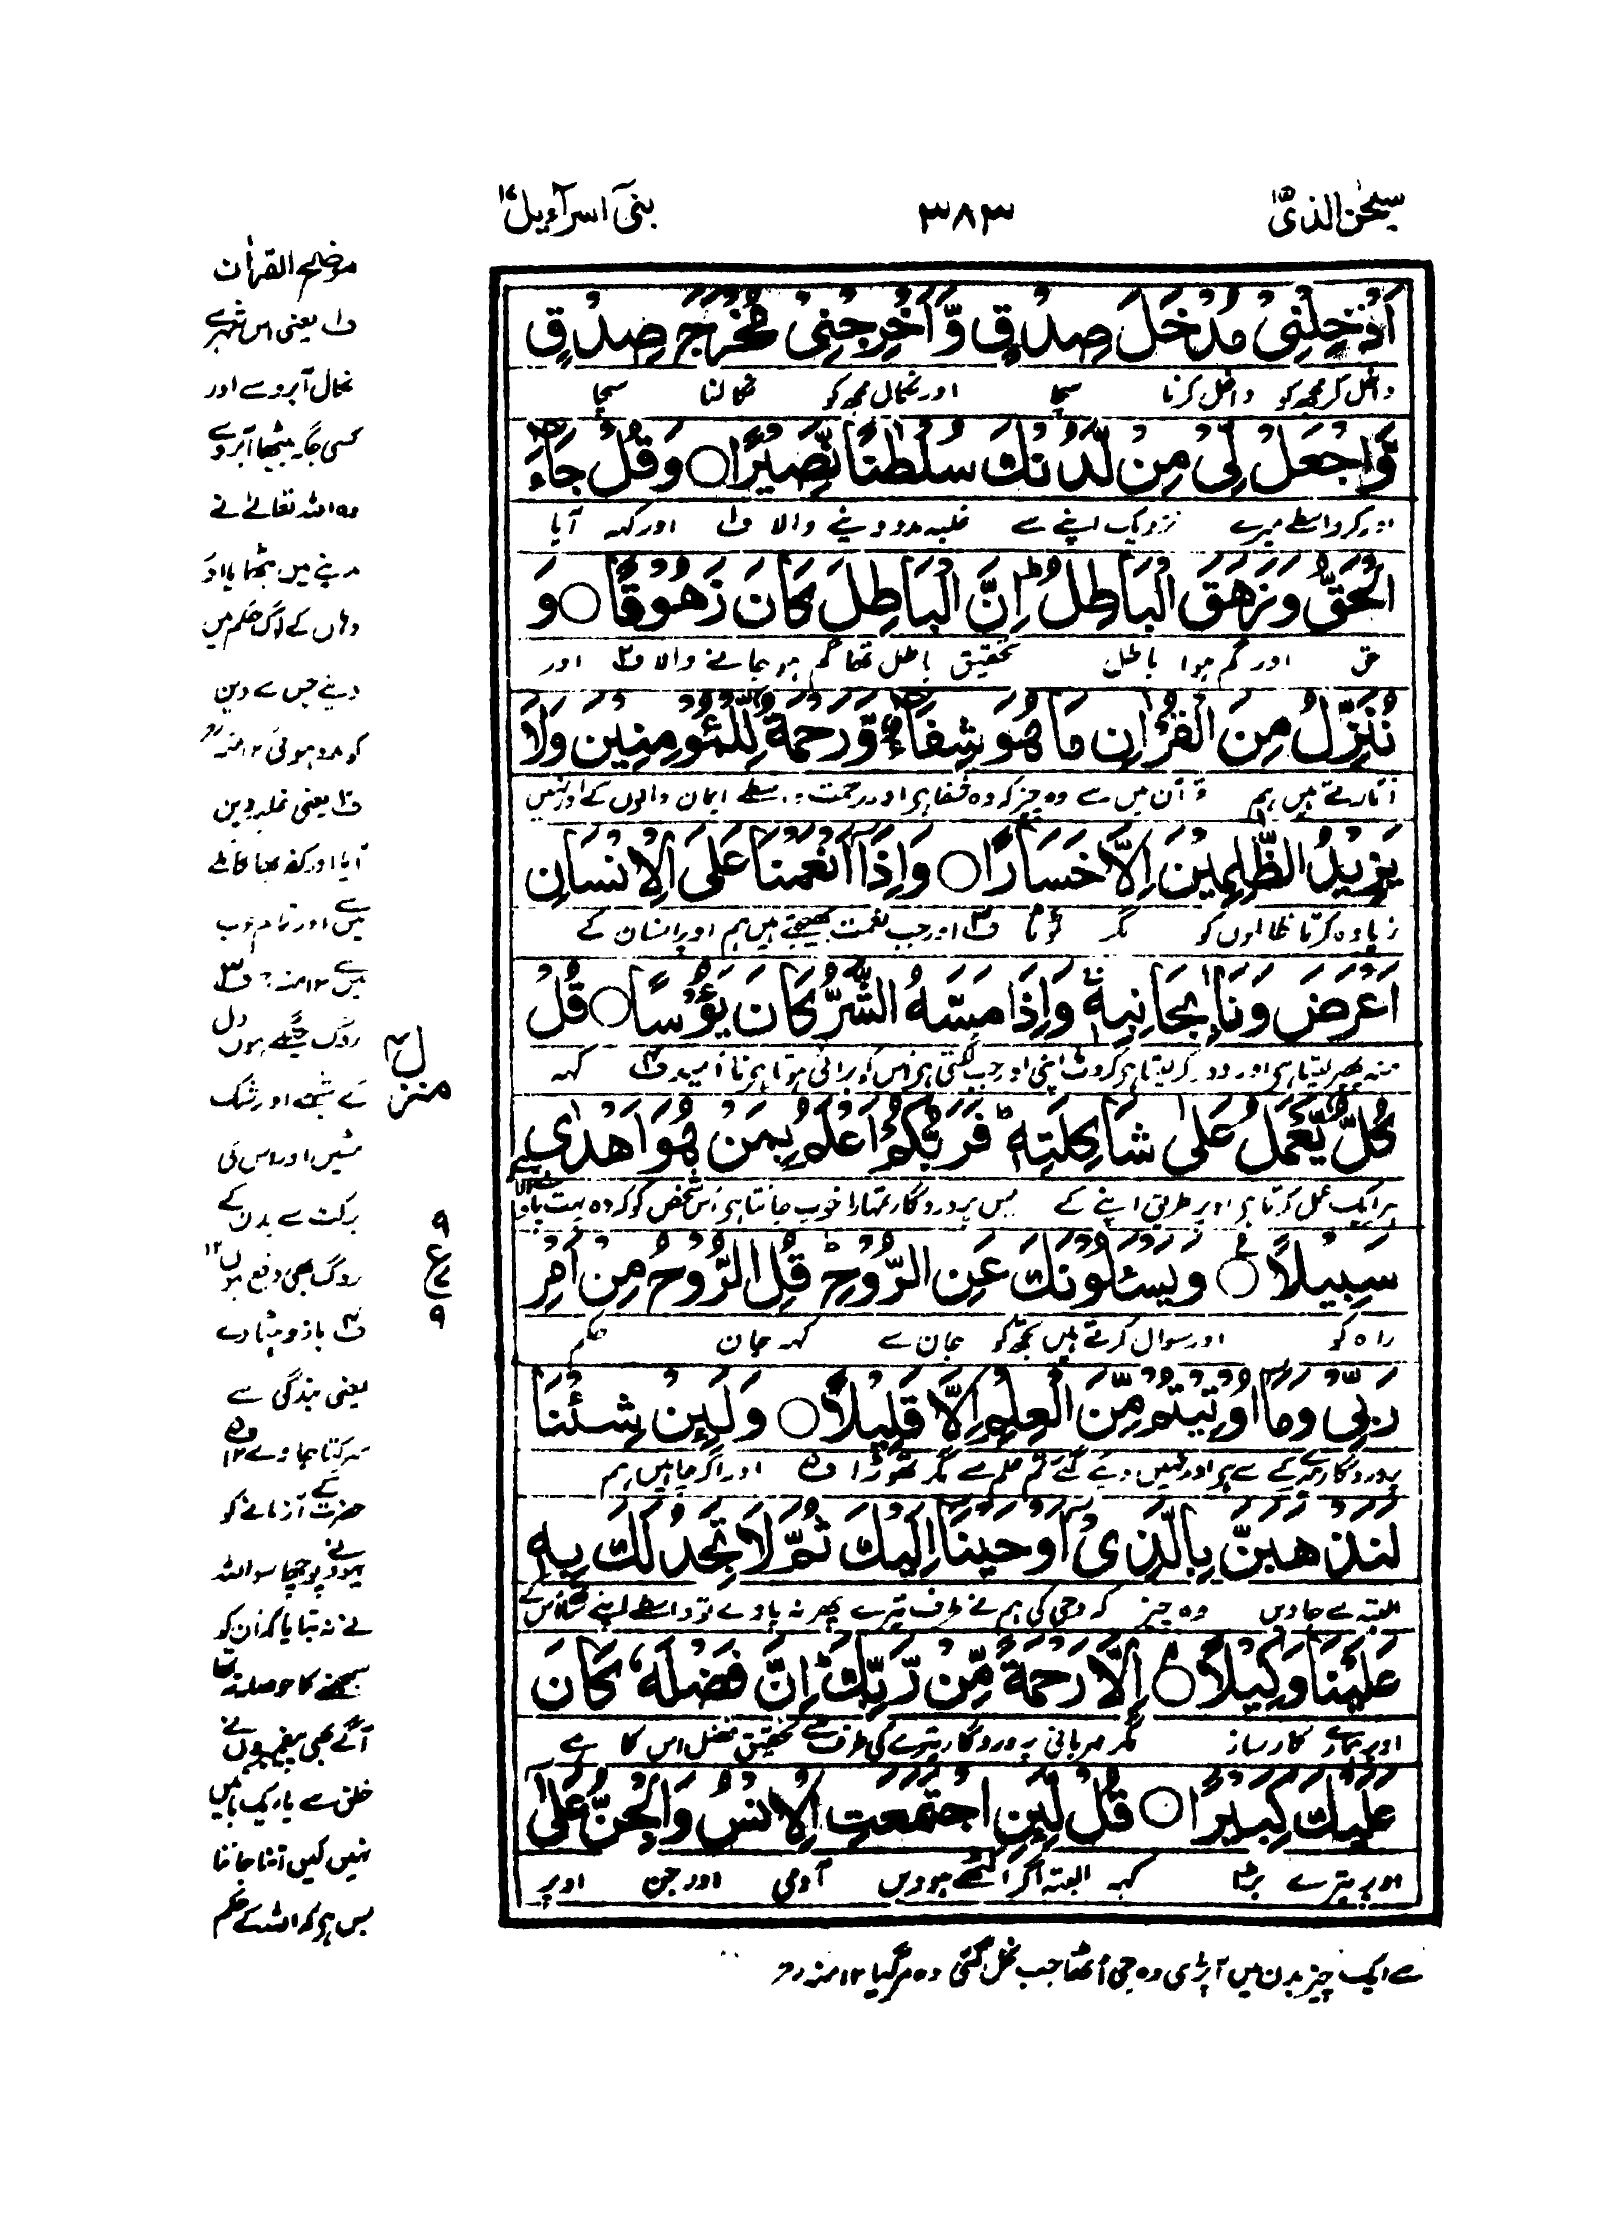 سبحٰن الذیٓ ۱۵
۳۸۳
بنیٓ اسرآءیل ۱۷
اَدْخِلْنِیْ مُدْخَلَ صِدْقٍ وَّاَخْرِجْنِیْ مُخْرَجَ صِدْقٍ
داخل کر مجھ کو داخل کرنا سچا اور نکال مجھ کو نکالنا سچا
وَّاجْعَلْ لِّیْ مِنْ لَّدُنْكَ سُلْطٰنًا نَّصِیْرًا ○ وَقُلْ جَآءَ
اور کر واسطے میرے نزدیک اپنے سے غلبہ مدد دینے والا ف۱ اور کہہ آیا
الْحَقُّ وَزَهَقَ الْبَاطِلُ ؕ اِنَّ الْبَاطِلَ كَانَ زَهُوْقًا ○ وَ
حق اور گم ہوا باطل تحقیق باطل تھا گم ہو جانے والا ف۲ اور
نُنَزِّلُ مِنَ الْقُرْاٰنِ مَا هُوَ شِفَآءٌ وَّرَحْمَةٌ لِّلْمُؤْمِنِیْنَ وَلَا
اتارتے ہیں ہم قرآن میں سے وہ چیز کہ وہ شفا ہی اور رحمت واسطے ایمان والوں کے اور نہیں
یَزِیْدُ الظّٰلِمِیْنَ اِلَّا خَسَارًا ○ وَاِذَاۤ اَنْعَمْنَا عَلَی الْاِنْسَانِ
زیادہ کرتا ظالموں کو مگر ٹوٹا ف۳ اور جب نعمت بھیجتے ہیں ہم اوپر انسان کے
اَعْرَضَ وَنَاٰ بِجَانِبِهٖ ۚ وَاِذَا مَسَّهُ الشَّرُّ كَانَ یَئُوْسًا ○ قُلْ
منہ پھیر لیتا ہی اور دور کر لیتا ہی کروٹ اپنی اور جب لگتی ہی اس کو برائی ہوتا ہی نا امید ف۴ کہہ
كُلٌّ یَّعْمَلُ عَلٰی شَاكِلَتِهٖ ؕ فَرَبُّكُمْ اَعْلَمُ بِمَنْ هُوَ اَهْدٰی
ہر ایک عمل کرتا ہی اوپر طریق اپنے کے بس پروردگار تمہارا خوب جانتا ہی اس شخص کو کہ وہ بہت
سَبِیْلًا ○ وَیَسْئَلُوْنَكَ عَنِ الرُّوْحِ ؕ قُلِ الرُّوْحُ مِنْ اَمْرِ
راہ کو اور سوال کرتے ہیں تجھ کو جان سے کہہ جان حکم
رَبِّیْ وَمَاۤ اُوْتِیْتُمْ مِّنَ الْعِلْمِ اِلَّا قَلِیْلًا ○ وَلَئِنْ شِئْنَا
پروردگار میرے کے سے ہی اور نہیں دیے گئے تم علم سے مگر تھوڑا ف۵ اور اگر چاہیں ہم
لَنَذْهَبَنَّ بِالَّذِیْۤ اَوْحَیْنَاۤ اِلَیْكَ ثُمَّ لَا تَجِدُ لَكَ بِهٖ
البتہ لے جاویں وہ چیز کہ وحی کی ہم نے طرف تیرے پھر نہ پاوے تو واسطے اپنے ساتھ اس کے
عَلَیْنَا وَكِیْلًا ○ اِلَّا رَحْمَةً مِّنْ رَّبِّكَ ؕ اِنَّ فَضْلَهٗ كَانَ
اوپر ہمارے کارساز مگر مہربانی پروردگار تیرے کی طرف سے تحقیق فضل اس کا ہے
عَلَیْكَ كَبِیْرًا ○ قُلْ لَّئِنِ اجْتَمَعَتِ الْاِنْسُ وَالْجِنُّ عَلٰۤی
اوپر تیرے بڑا کہہ البتہ اگر اکٹھے ہوویں آدمی اور جن اوپر
منزل ۴
۹
ع
۹
موضح القراٰن
ف۱ یعنی اس شہر سے
نکال آبرو سے اور
کسی جگہ بٹھا آبرو سے
وہ اللہ تعالےٰ نے
مدینے میں بٹھایا اور
وہاں کے لوگ حکم میں
دیئے جس سے دین
کو مدد ہوئی ۱۲ منہ رح
ف۲ یعنی غلبہ دین
آیا اور کفر بھاگا مکے
سے اور تمام عرب
سے ۱۲ منہ رح ف۳
روگ چنگے ہوں دل
کے شبہے اور شک
مٹیں اور اس کی
برکت سے بدن کے
روگ بھی دفع ہوں ۱۲
ف۴ بازو ہٹا دے
یعنی بندگی سے
سرکتا جاوے ۱۲ ف۵
حضرت کے آزمانے کو
یہود نے پوچھا سو اللہ
نے نہ بتایا کہ ان کو
سمجھنے کا حوصلہ نہ تھا
آگے بھی پیغمبروں نے
خلق سے باریک باتیں
نہیں کہیں اتنا جاننا
بس ہی کہ اللہ کے حکم
سے ایک چیز بدن میں آ پڑی وہ جی اُٹھا جب نکل گئی وہ مر گیا ۱۲ منہ رح